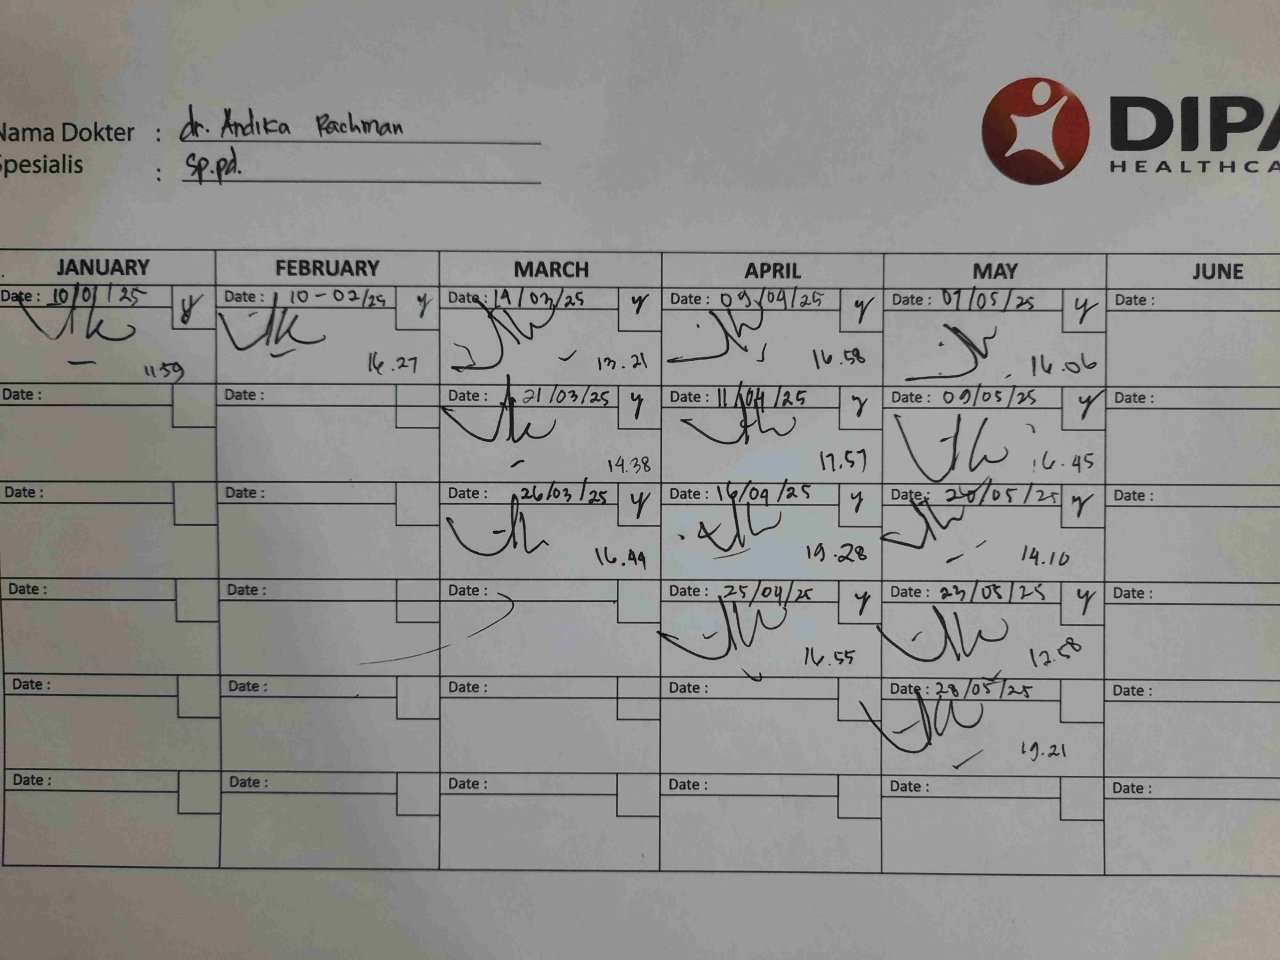 Nama Dokter : dr. Andika Rachman
Spesialis : Sp.pd.
DIPA
HEALTHCA
JANUARY FEBRUARY MARCH APRIL MAY JUNE
Date : 10/01/25 y Date : 10-02/25 y Date : 19/03/25 y Date : 09/04/25 y Date : 07/05/25 y Date :
11.59 16.27 13.21 16.58 16.06
Date : Date : Date : 21/03/25 y Date : 11/04/25 y Date : 09/05/25 y Date :
14.38 17.57 16.45
Date : Date : Date : 26/03/25 y Date : 16/04/25 y Date : 20/05/25 y Date :
16.44 19.28 14.10
Date : Date : Date : Date : 25/04/25 y Date : 23/05/25 y Date :
16.55 12.58
Date : Date : Date : Date : Date : 28/05/25 Date :
19.21
Date : Date : Date : Date : Date : Date :